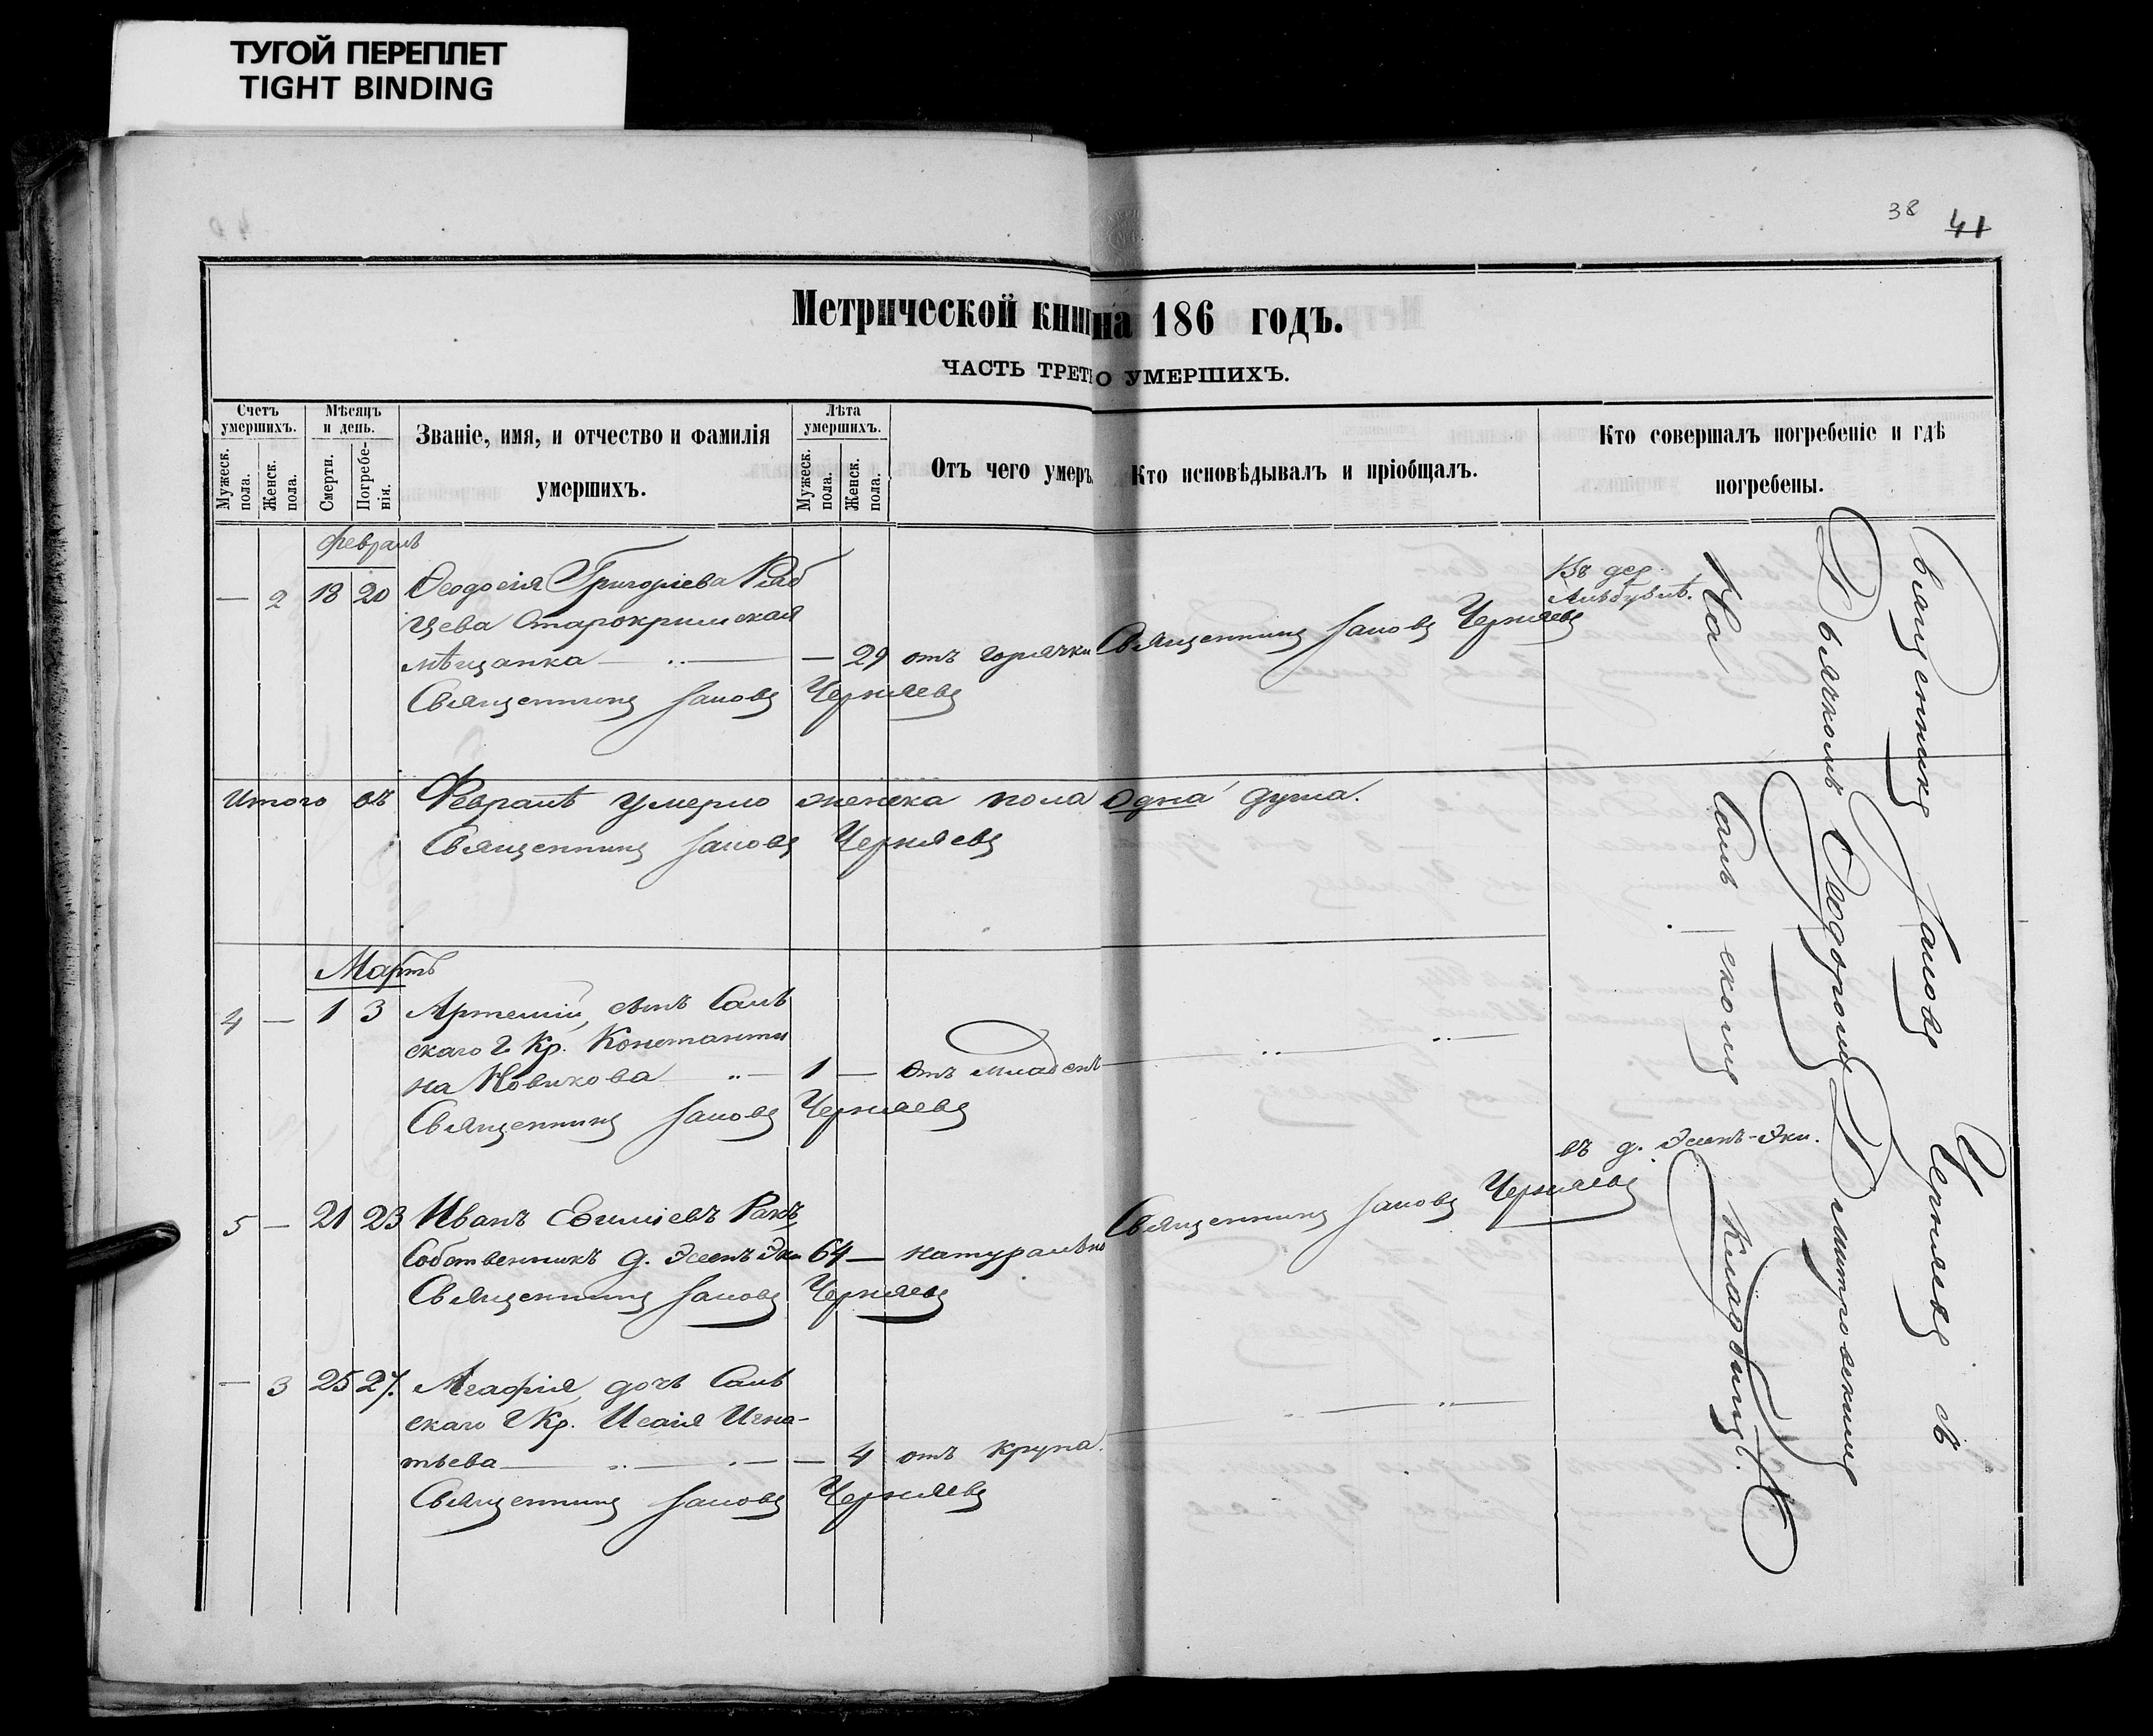 ТУГОЙ ПЕРЕПЛЕТ
TIGHT BINDING
38 41
Метрической книг на 186 годъ.
ЧАСТЬ ТРЕТ О УМЕРШИХЪ.
Счетъ умершихъ.
Мужеск. пола.
Женск. пола.
Мѣсяцъ и день.
Смерти.
Погребе-
нія.
Званіе, имя, и отчество и фамилія
умершихъ.
Лѣта умершихъ.
Мужеск. пола.
Женск. пола.
Отъ чего умеръ
Кто исповѣдывалъ и пріобщалъ.
Кто совершалъ погребеніе и гдѣ
погребены.
Февраль
— 2 18 20 Ѳеодосія Григоріева Ряб
цева Старокримская
мѣщанка — — 29 отъ горячки Священникъ Іаковъ Черняевъ
Въ дер.
Священникъ Іаковъ Черняевъ
Итого въ Февралѣ умерло женска пола одна душа.
Священникъ Іаковъ Черняевъ
Мартъ
4 — 1 3 Артемій, сынъ Саль
скаго Г. Кр. Константи
на Новикова — 1 — Отъ младенч
Священникъ Іаковъ Черняевъ
въ д. Эсенъ-Эки.
5 — 21 23 Иванъ Евѳиміевъ Ракъ
Собственникъ д. Эсенъ Эки 64 — натурально Священникъ Іаковъ Черняевъ
Священникъ Іаковъ Черняевъ
— 3 25 27. Агафія, дочь Саль
скаго Г. Кр. Исаія Игна-
тьева — — 4 отъ крупа.
Священникъ Іаковъ Черняевъ
Священникъ Іаковъ Черняевъ съ
Дьячкомъ Ѳеодоромъ Дмитровскимъ
На Сальскомъ кладбищѣ.